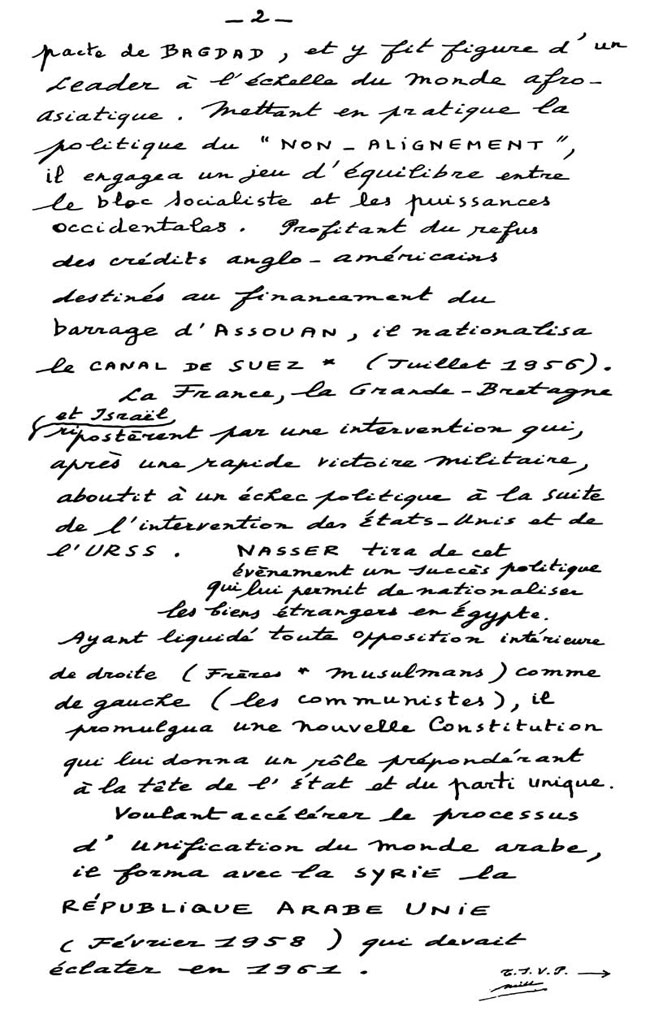 - 2 -
pacte de BAGDAD, et y fit figure d'un
Leader à l'échelle du monde afro-
asiatique. Mettant en pratique la
politique du "NON-ALIGNEMENT",
il engagea un jeu d'équilibre entre
le bloc socialiste et les puissances
occidentales. Profitant du refus
des crédits anglo-américains
destinés au financement du
barrage d'ASSOUAN, il nationalisa
le CANAL DE SUEZ * (Juillet 1956).
La France, la Grande-Bretagne
et Israël
ripostèrent par une intervention qui,
après une rapide victoire militaire,
aboutit à un échec politique à la suite
de l'intervention des États-Unis et de
l'URSS. NASSER tira de cet
évènement un succès politique
qui lui permit de nationaliser
les biens étrangers en Égypte.
Ayant liquidé toute opposition intérieure
de droite (Frères * musulmans) comme
de gauche (les communistes), il
promulgua une nouvelle Constitution
qui lui donna un rôle prépondérant
à la tête de l'État et du parti unique.
Voulant accélérer le processus
d'unification du monde arabe,
il forma avec la SYRIE la
RÉPUBLIQUE ARABE UNIE
(Février 1958) qui devait
éclater en 1961.
T.S.V.P. →